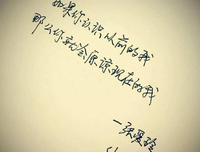 如果你认识从前的我
那么你就会原谅现在的我
—张爱玲